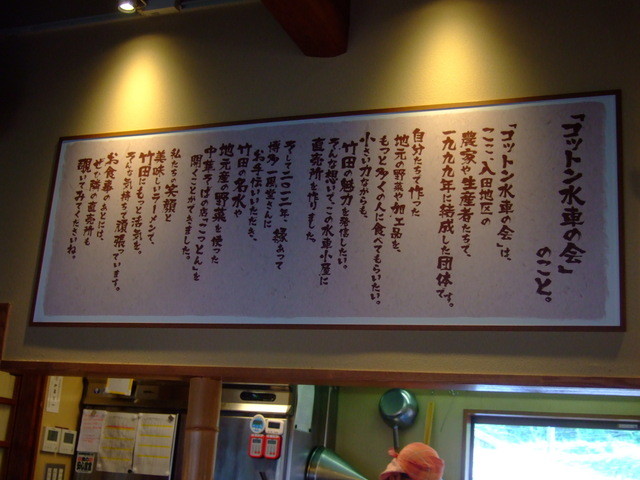 「ゴットン水車の会」
のこと。
「ゴットン水車の会」は、
ここ、入田地区の
農家や生産者たちで、
一九九九年に結成した団体です。
自分たちで作った
地元の野菜や加工品を、
もっと多くの人に食べてもらいたい。
小さい力ながらも、
竹田の魅力を発信したい。
そんな想いで、この水車小屋に
直売所を作りました。
そして二〇一二年、縁あって
博多一風堂さんに
お手伝いいただき、
竹田の名水や
地元産の野菜を使った
中華そばの店「こっとん」を
開くことができました。
私たちの笑顔と
美味しいラーメンで、
竹田にもっと活気を。
そんな気持ちで頑張ています。
お食事のあとには、
ぜひ隣の直売所も
覗いてみてくださいね。